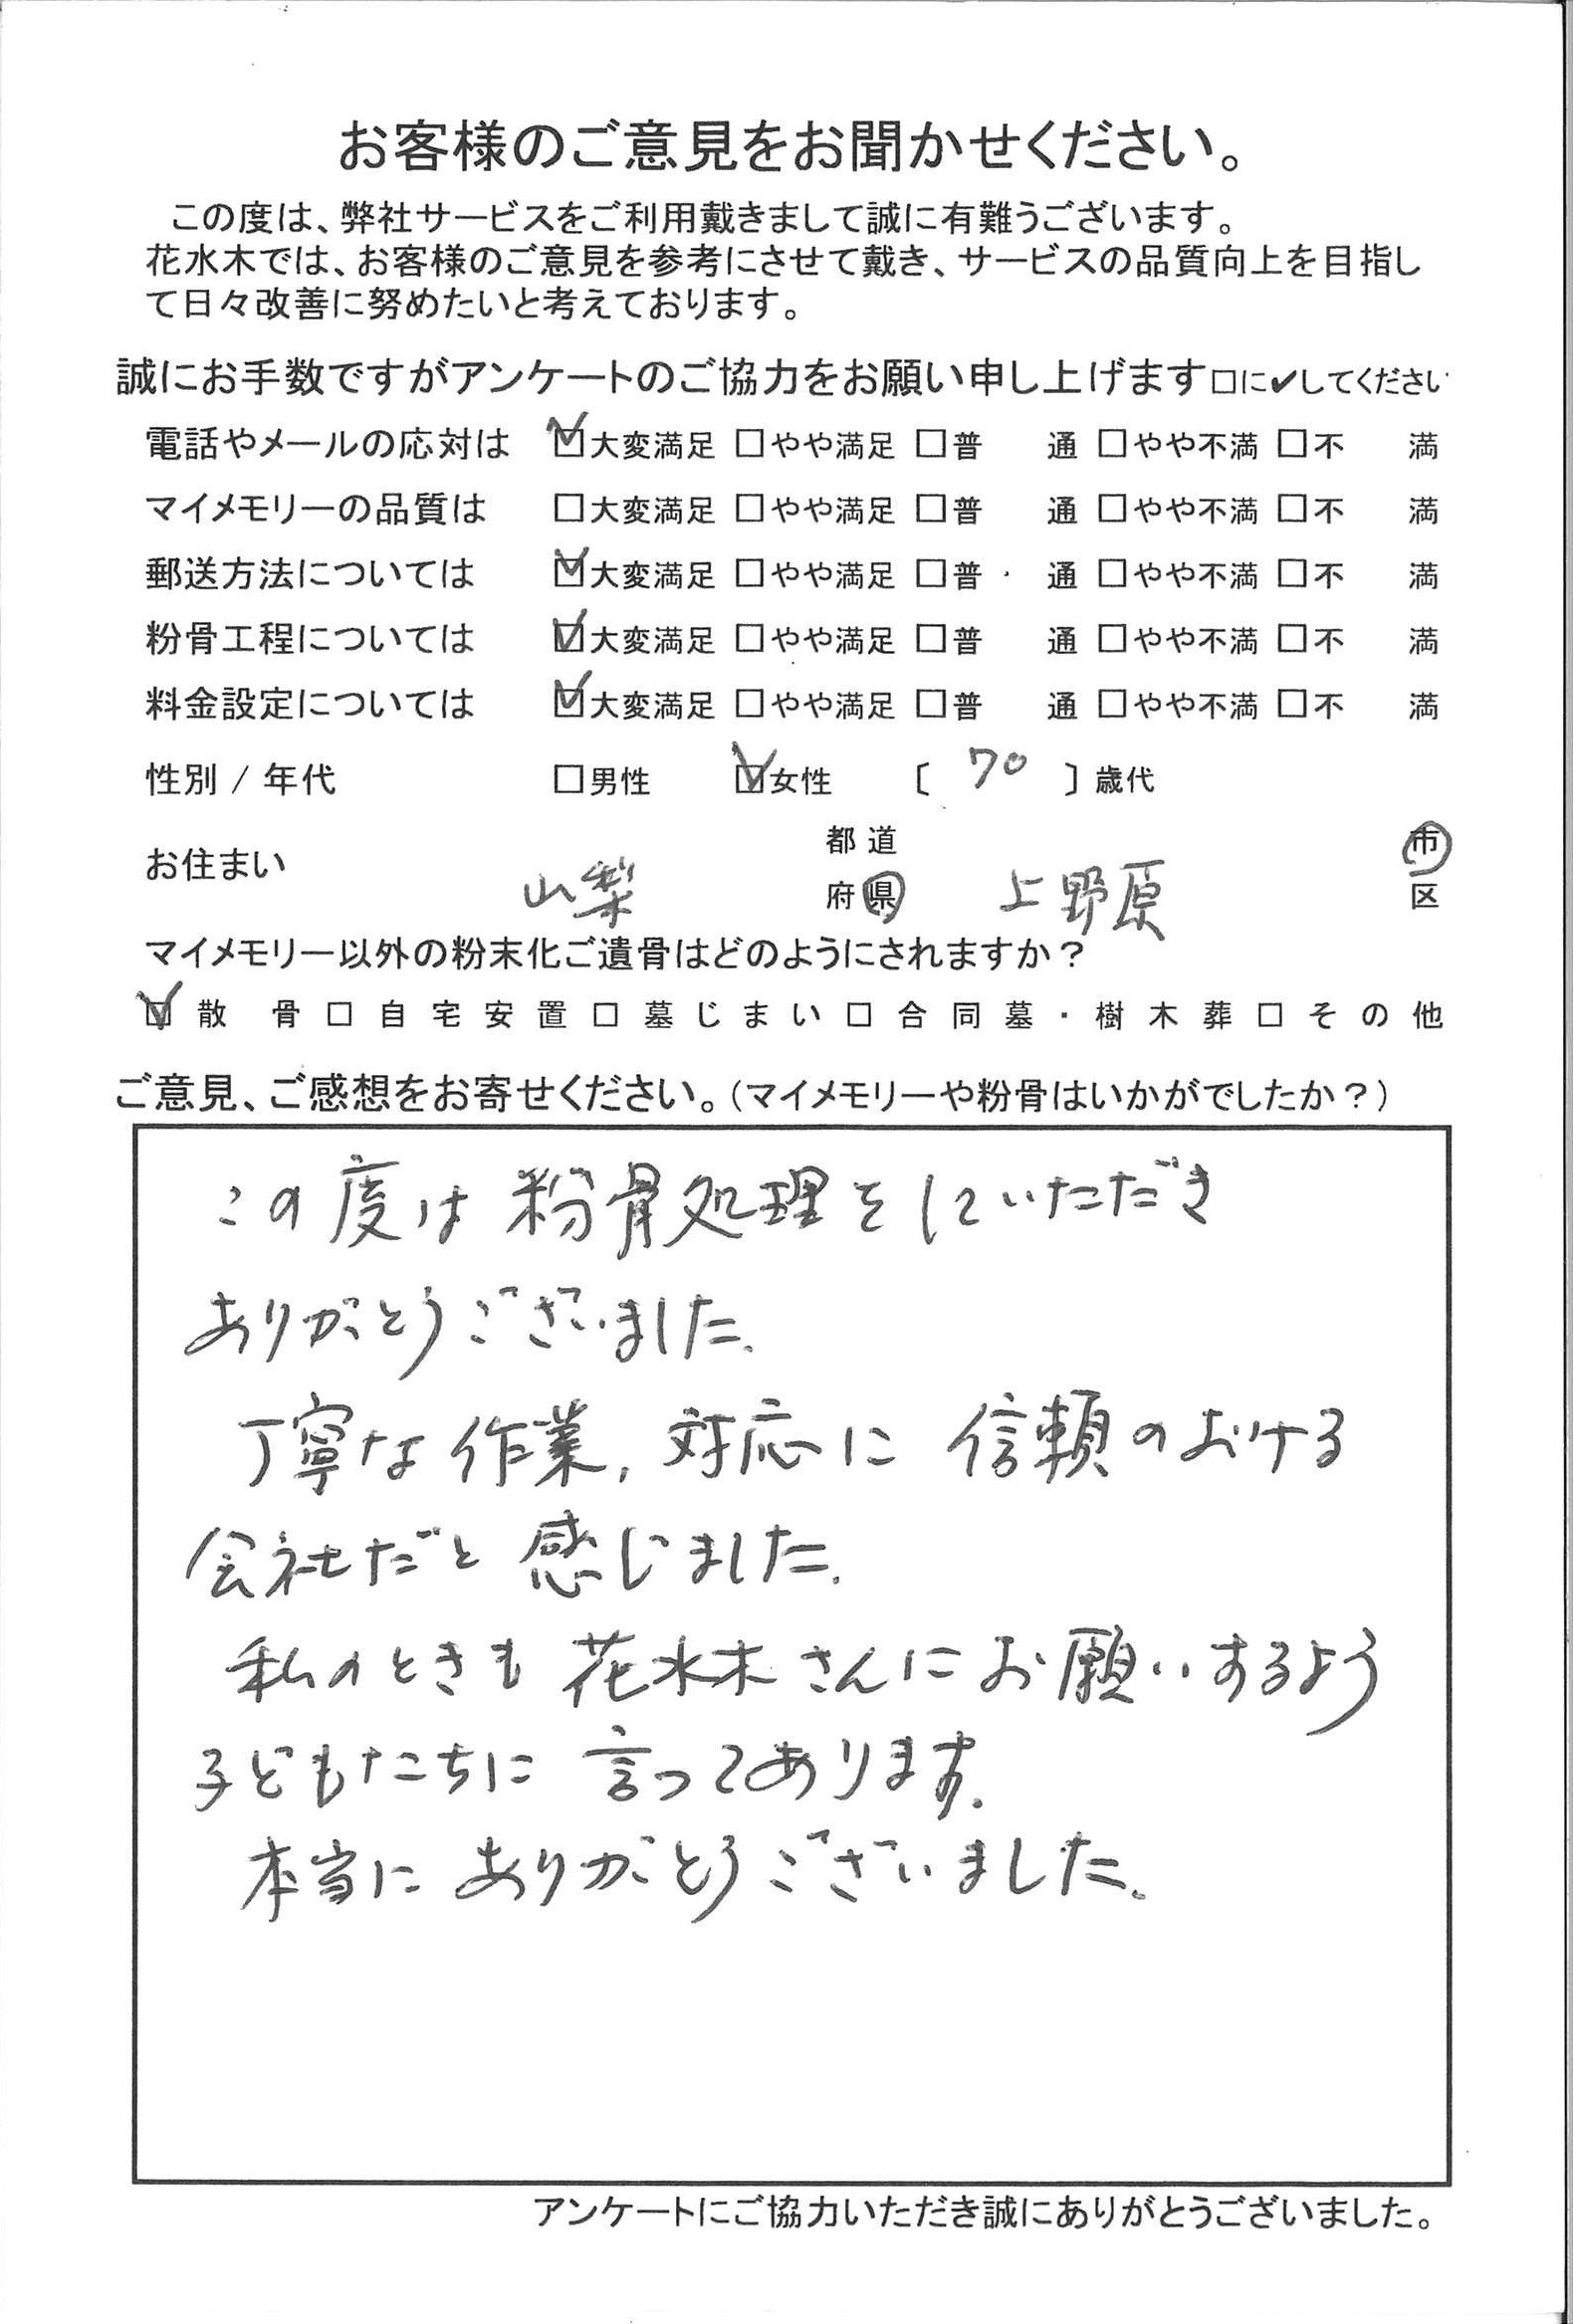 お客様のご意見をお聞かせください。
この度は、弊社サービスをご利用戴きまして誠に有難うございます。
花水木では、お客様のご意見を参考にさせて戴き、サービスの品質向上を目指し
て日々改善に努めたいと考えております。
誠にお手数ですがアンケートのご協力をお願い申し上げます□に✔してください
電話やメールの応対は ☑大変満足 □やや満足 □普 通 □やや不満 □不 満
マイメモリーの品質は □大変満足 □やや満足 □普 通 □やや不満 □不 満
郵送方法については ☑大変満足 □やや満足 □普 通 □やや不満 □不 満
粉骨工程については ☑大変満足 □やや満足 □普 通 □やや不満 □不 満
料金設定については ☑大変満足 □やや満足 □普 通 □やや不満 □不 満
性別 / 年代 □男性 ☑女性 〔 70 〕歳代
お住まい 山梨 都道府県 上野原 市区
マイメモリー以外の粉末化ご遺骨はどのようにされますか?
☑散骨□自宅安置□墓じまい□合同墓・樹木葬□その他
ご意見、ご感想をお寄せください。(マイメモリーや粉骨はいかがでしたか?)
この度は粉骨処理をしていただき
ありがとうございました.
丁寧な作業,対応に信頼のおける
会社だと感じました.
私のときも花水木さんにお願いするよう
子どもたちに言ってあります.
本当にありがとうございました.
アンケートにご協力いただき誠にありがとうございました。